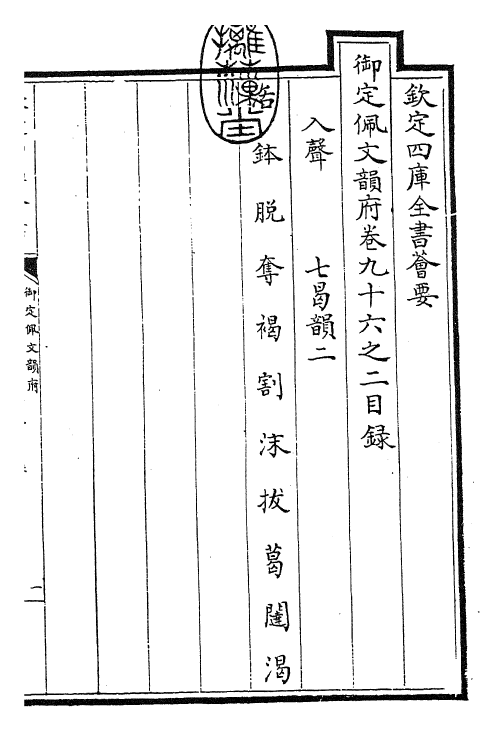 欽定四庫全書薈要
御定佩文韻府卷九十六之二目録
入聲 七曷韻二
鉢 脱 奪 褐 割 沫 拔 葛 闥 渴
御定佩文韻府